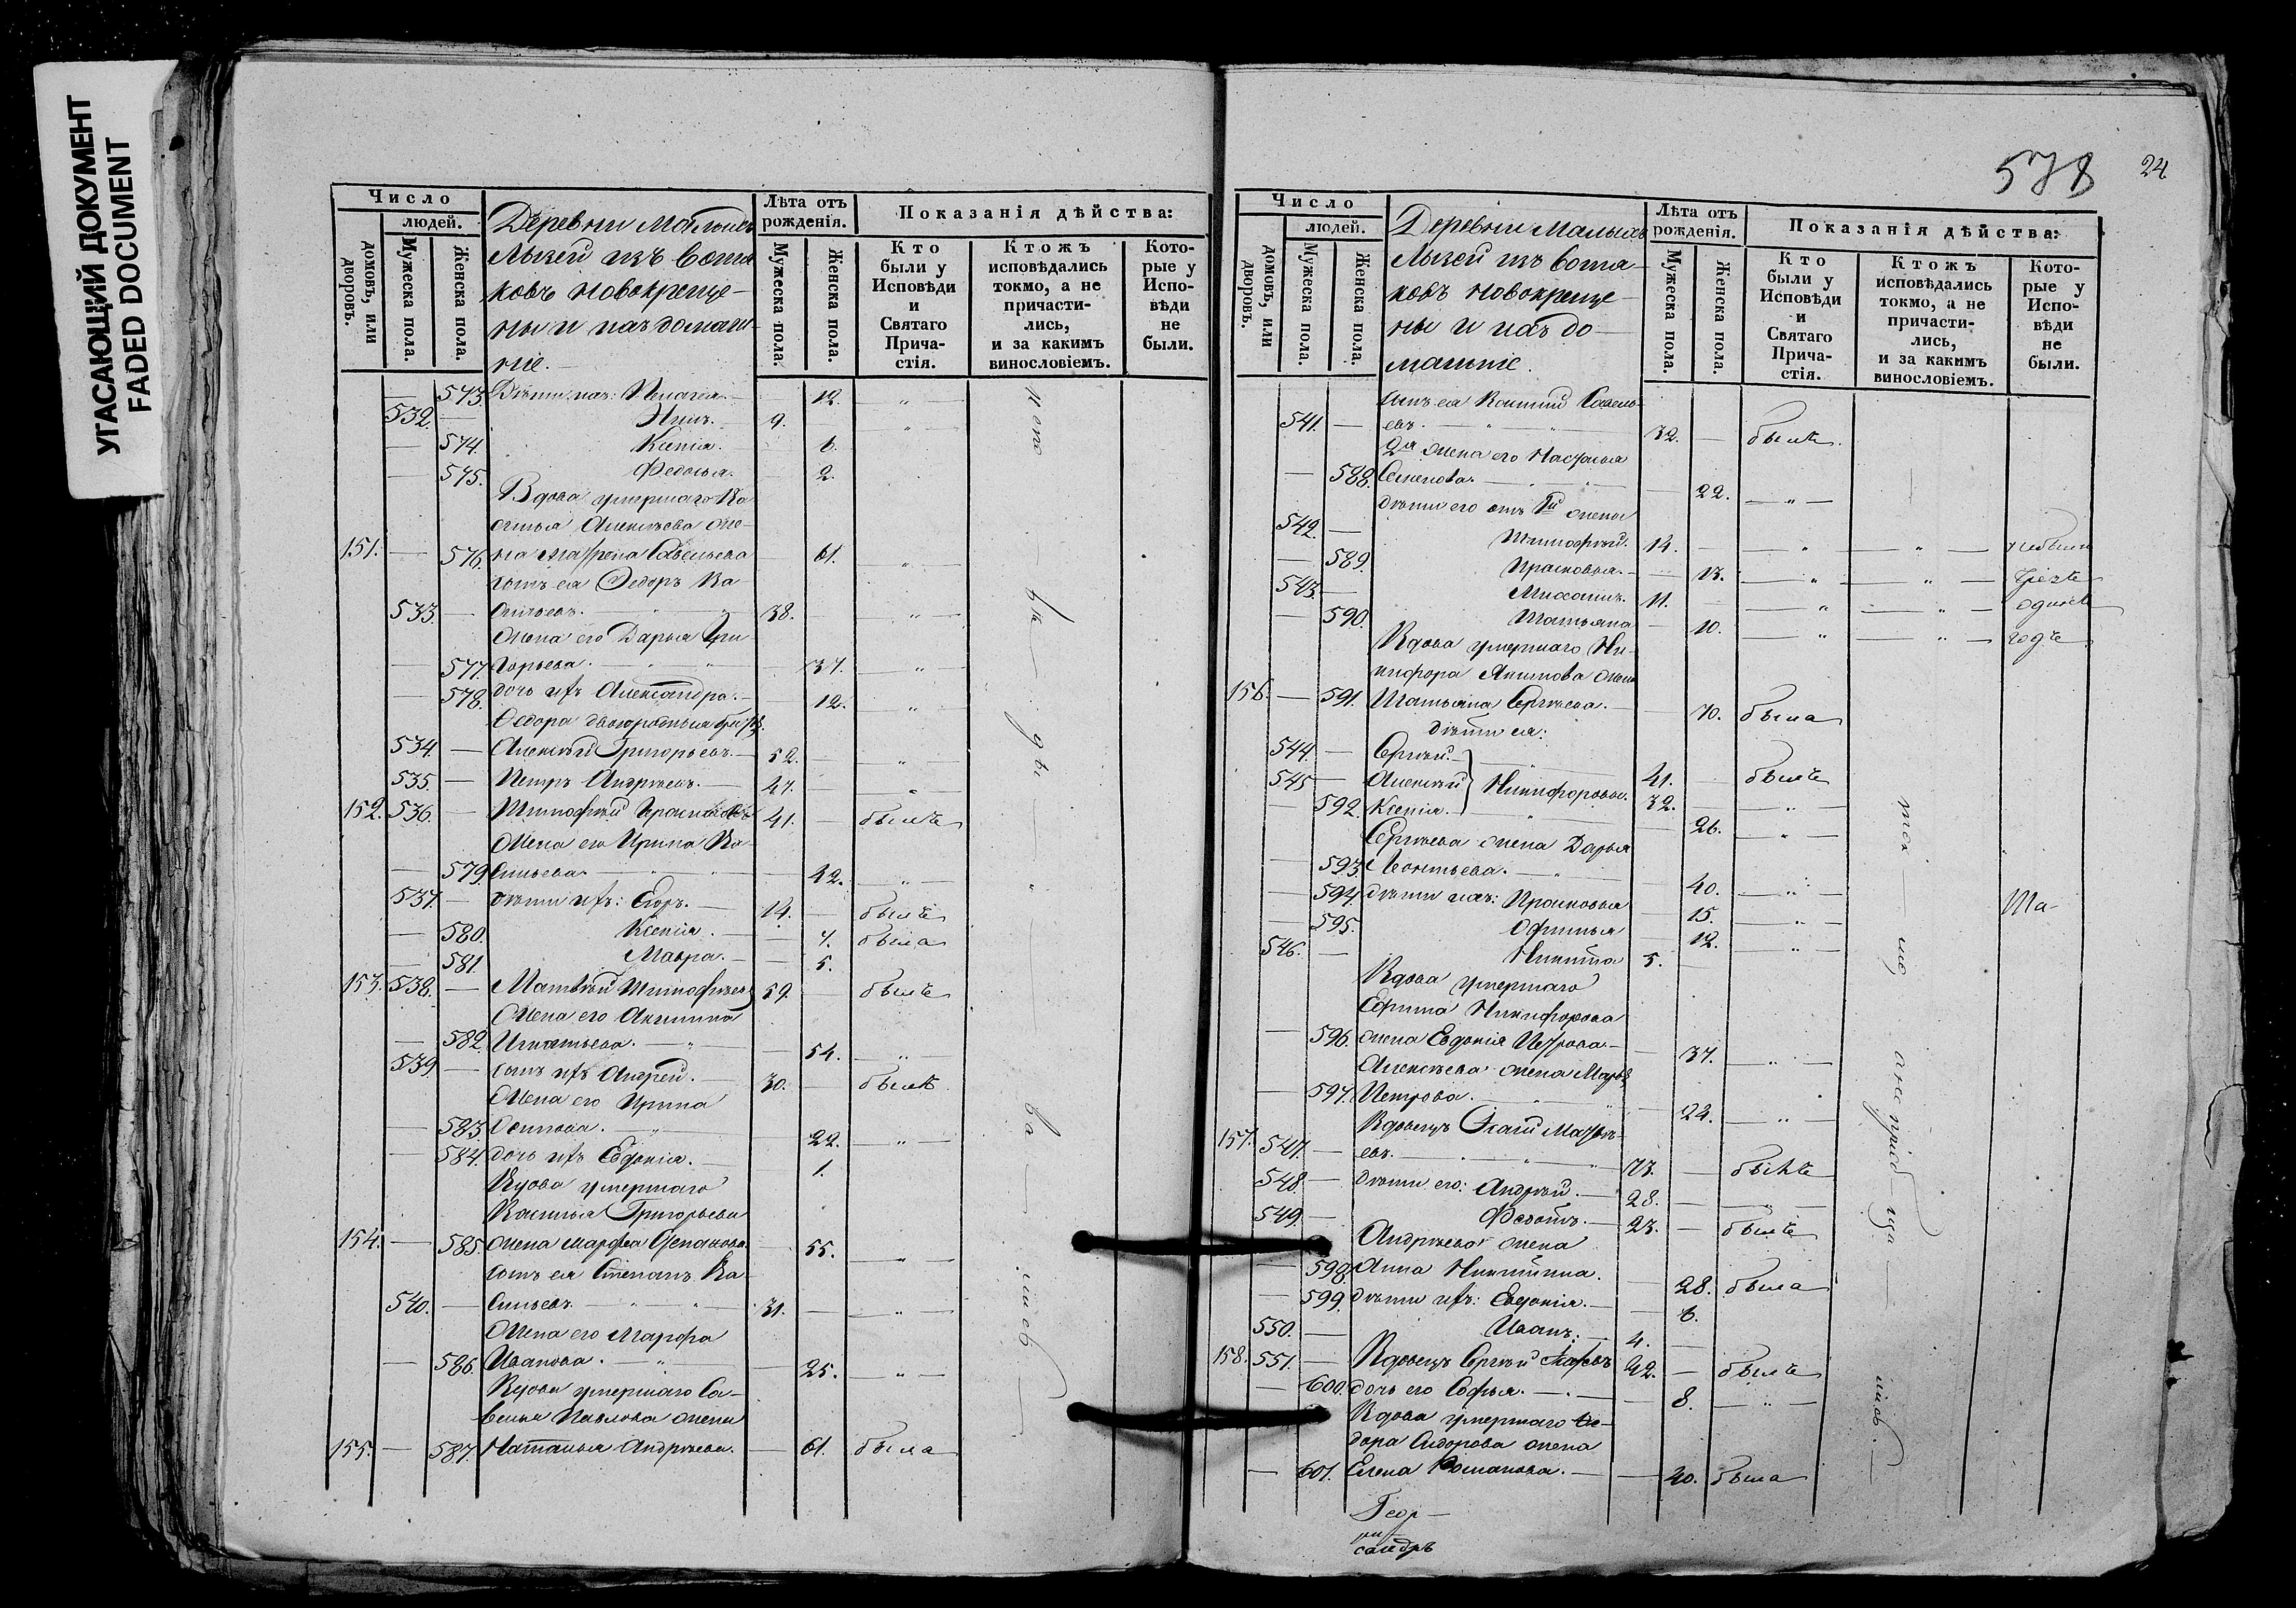 УГАСАЮЩИЙ ДОКУМЕНТ
FADED DOCUMENT
Число
людей.
домовъ, или дворовъ.
Мужеска пола.
Женска пола.
Деревни Малыхъ
Лызей изъ Вотя-
ковъ новокреще-
ны и ихъ домаш-
ніе.
Лѣта отъ рожденія.
Мужеска пола.
Женска пола.
Показанія дѣйства:
Кто были у Исповѣди и Святаго Причастія.
Ктожъ исповѣдались токмо, а не причастились, и за какимъ винословіемъ.
Которые у Исповѣди не были.
573. Дѣти ихъ: Пелагея. — 12. — „ —
532. — 9. — „ —
574. Ксенія. 6.
575. Федосья. 2.
Вдова умершаго Ва-
силья Алексѣева же-
151. — 576. на Матрена Савельева 61. — „ —
сынъ ея Федоръ Ва-
533. — сильевъ. — „ — „ 38. — „ —
Жена его Дарья Гри-
577. горьева. — „ — „ 37. — „ —
578. дочь ихъ Александра. — 12. — „ —
Федора двоюродныя братья
534. — Алексѣй Григорьевъ. — 52. — „ —
535. — Петръ Андреевъ. — 47. — „ —
152. 536. — Тимофѣй 41. — былъ
Жена его Ирина Ва-
579. сильева. — „ — 42. — „ —
537. — дѣти ихъ: Егоръ. — 14. — былъ
580. Ксенія. — 7. была
581. Мавра. — 5.
153. 538. — Матвѣй Тимофѣевъ 59. — былъ
Жена его Акилина
582. Игнатьева. — „ — 54. — „ —
539. — сынъ ихъ Андрей. — 30. — былъ
Жена его Ирина
583. Осипова. — „ — 22. — „ —
584. дочь ихъ Евдокія. — 1.
Вдова умершаго
Василья Григорьева
154. — 585. жена Марфа Степанова. 55. — „ —
сынъ ея Степанъ Ва-
540. — сильевъ. „ „ 31. — „ —
Жена его Марфа
586. Иванова. — „ — 25. — „ —
Вдова умершаго Са-
велья Павлова жена
155. — 587. Наталья Андрѣева. — 61. была
578
24
Число
людей.
домовъ, или дворовъ.
Мужеска пола.
Женска пола.
Деревни Малыхъ
Лызей изъ Вотя-
ковъ новокреще-
ны и ихъ до-
машніе.
Лѣта отъ рожденія.
Мужеска пола.
Женска пола.
Показанія дѣйства:
Кто были у Исповѣди и Святаго Причастія.
Ктожъ исповѣдались токмо, а не причастились, и за какимъ винословіемъ.
Которые у Исповѣди не были.
сынъ ея Василій Савель-
541. — евъ. — „ — „ 32. — былъ.
2я жена его Настасья
588. Семенова. — „ — „ 22. — „ —
дѣти его отъ 1й жены
542. — Тимофѣй. 14. — „ — „ — небыли
589. Прасковья. — 13. — „ — „ —
543. — Михаилъ. 11. — „ — „ — одинъ
590. Татьяна 10. — „ — „ — годъ
Вдова умершаго Ни-
кифора Якимова жена
156. — 591. Татьяна Сергѣева. — 70. была
дѣти ея:
544. — Сергѣй. — 41. — былъ
545 — Алексѣй } Никифоровы. 32. — „ —
592. Ксенія. — 26. — „ —
Сергѣева жена Дарья
593. Леонтьева. — „ — 40. — „ —
594. дѣти ихъ: Прасковья 15. — „ —
595. Офимья 12. — „ —
546. — Никита 5. —
Вдова умершаго
Ефима Никифорова
596. жена Евдокія Петрова — 37. — „ —
Алексѣева жена Марья
597. Петрова. — „ — „ 24. — „ —
157. 547. — евъ. — „ — „ — „ 73. — былъ
548. — дѣти его: Андрѣй. — 28. — „ —
549. — Федотъ. — 23. — былъ
Андрѣева жена
598. Анна Никитина. 28. была
599. дѣти ихъ: Евдокія. — 6.
550. — Иванъ. — 4. —
158. 551. — Вдовецъ Сергѣй 42. — былъ
600. дочь его Софья. — „ — 8. — „ —
Вдова умершаго Ѳе-
дора Сидорова жена
601. Елена Романова. — 40. была
Геор-